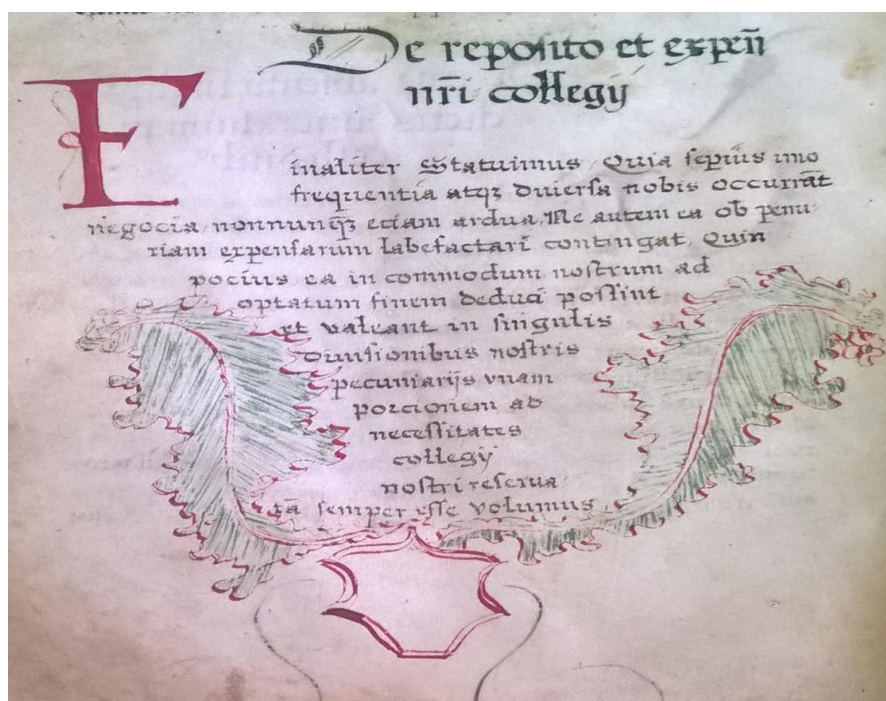 De reposito et expeñ
nr̄i collegij
Finaliter Statuimus Quia sepius imo
frequentia atqꝫ diuersa nobis occurrāt
negocia nonnunqꝫ eciam ardua Ne autem ea ob penu
riam expensarum labefactari contingat Quin
pocius ea in commodum nostrum ad
optatum finem deduci possint
et valeant in singulis
diuisionibus nostris
pecuniarijs vnam
porcionem ad
necessitates
collegij
nostri reserua
tā semper esse volumus